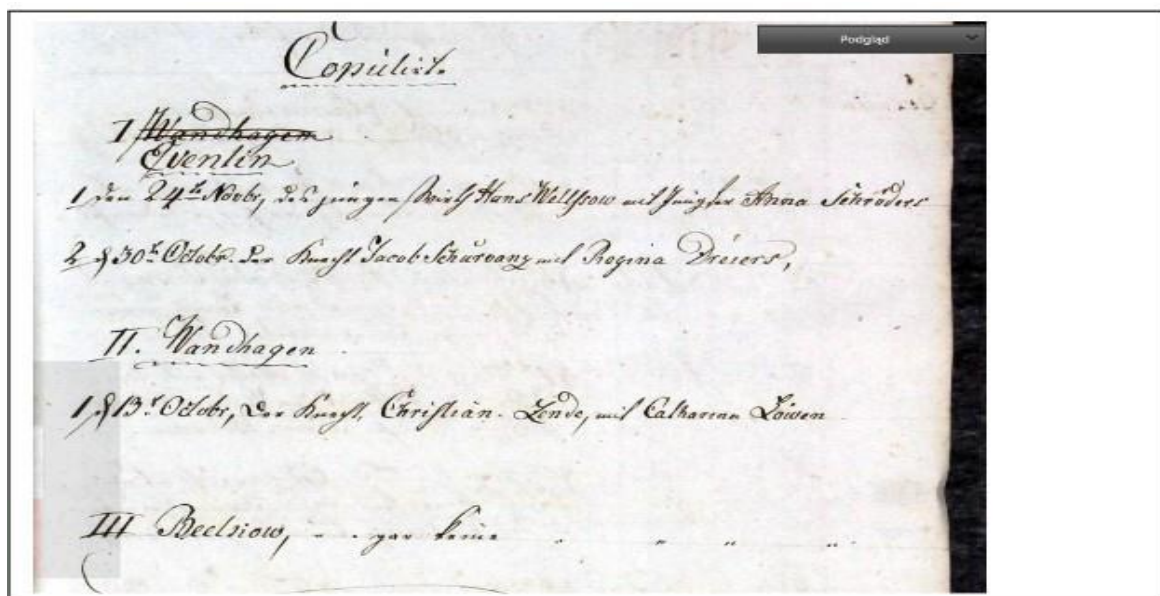 Podgląd
Copulirt.
I Wandhagen
Eventin
1 Den 24t Novbr, des jungen Wirth Hans Wellsow mit Jungfer Anna Schröders
2 d 30t Octobr. Der Knecht Jacob mit Regina Dreiers,
II. Wandhagen
1 d 13t Octobr, Der Knecht, Christian. Lende, mit Catharina
III Beelsiow, - - gar keine " " " "